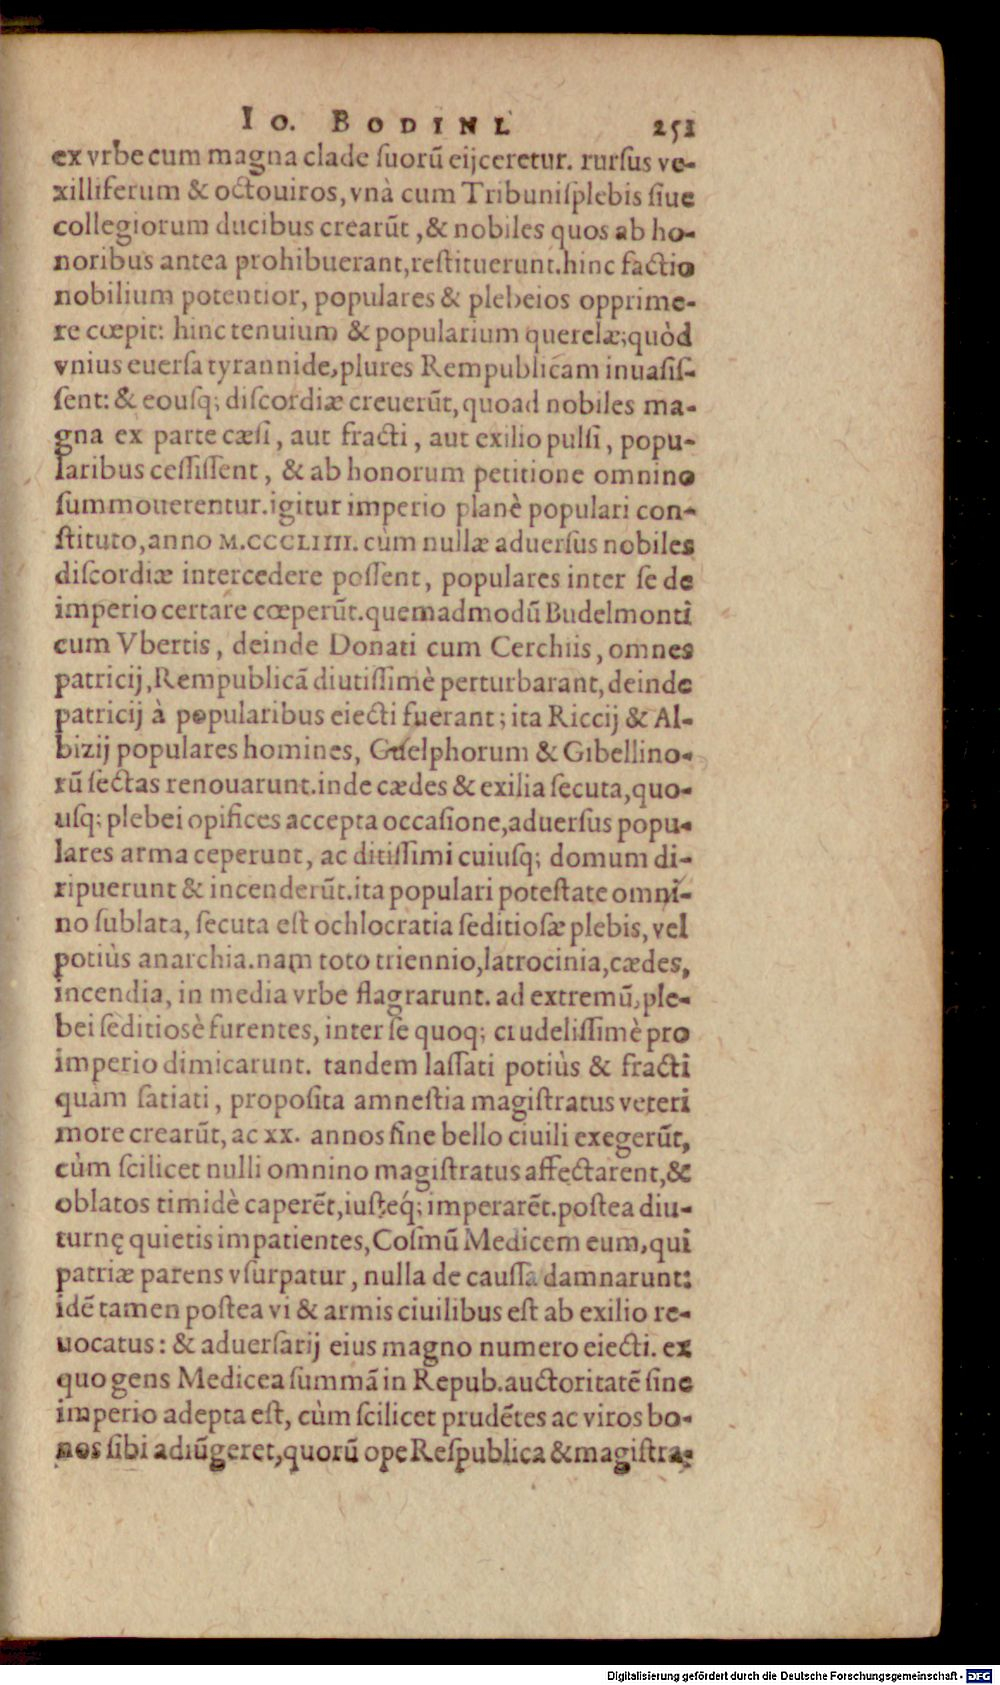 IO. BODINI. 251
ex vrbe cum magna clade ſuorū eijceretur. rurſus ve-
xilliferum & octouiros, vnà cum Tribuniſplebis ſiue
collegiorum ducibus crearūt, & nobiles quos ab ho-
noribus antea prohibuerant, reſtituerunt. hinc factio
nobilium potentior, populares & plebeios opprime-
re cœpit: hinc tenuium & popularium querelæ; quòd
vnius euerſa tyrannide, plures Rempublicam inuaſiſ-
ſent: & eouſq; diſcordiæ creuerūt, quoad nobiles ma-
gna ex parte cæſi, aut fracti, aut exilio pulſi, popu-
laribus ceſſiſſent, & ab honorum petitione omnino
ſummouerentur. igitur imperio planè populari con-
ſtituto, anno M.CCCLIIII. cùm nullæ aduerſus nobiles
diſcordiæ intercedere poſſent, populares inter ſe de
imperio certare cœperūt. quemadmodū Budelmonti
cum Vbertis, deinde Donati cum Cerchiis, omnes
patricij, Rempublicā diutiſſimè perturbarant, deinde
patricij à popularibus eiecti fuerant; ita Riccij & Al-
bizij populares homines, Guelphorum & Gibellino-
rū ſectas renouarunt. inde cædes & exilia ſecuta, quo-
uſq; plebei opifices accepta occaſione, aduerſus popu-
lares arma ceperunt, ac ditiſſimi cuiuſq; domum di-
ripuerunt & incenderūt. ita populari poteſtate omni-
no ſublata, ſecuta eſt ochlocratia ſeditioſæ plebis, vel
potiùs anarchia. nam toto triennio, latrocinia, cædes,
incendia, in media vrbe flagrarunt. ad extremū, ple-
bei ſeditiosè furentes, inter ſe quoq; crudeliſſimè pro
imperio dimicarunt. tandem laſſati potiùs & fracti
quàm ſatiati, propoſita amneſtia magiſtratus veteri
more crearūt, ac XX. annos ſine bello ciuili exegerūt,
cùm ſcilicet nulli omnino magiſtratus affectarent, &
oblatos timidè caperēt, iuſteq́; imperarēt. poſtea diu-
turnę quietis impatientes, Coſmū Medicem eum, qui
patriæ parens vſurpatur, nulla de cauſſa damnarunt:
idē tamen poſtea vi & armis ciuilibus eſt ab exilio re-
uocatus: & aduerſarij eius magno numero eiecti. ex
quo gens Medicea ſummā in Repub. auctoritatē ſine
imperio adepta eſt, cùm ſcilicet prudētes ac viros bo-
nos ſibi adiūgeret, quorū ope Reſpublica & magiſtra-
Digitalisierung gefördert durch die Deutsche Forschungsgemeinschaft - DFG